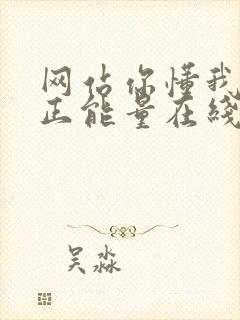 网估你懂我
正能量在线
吴淼